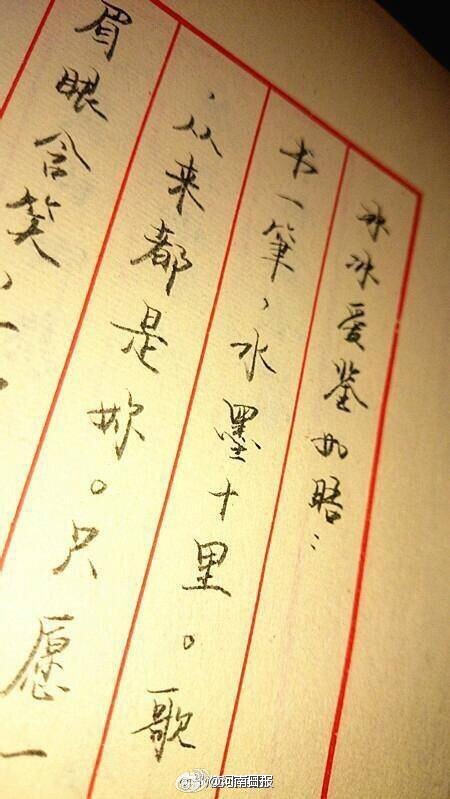 冰冰爱鉴如晤：
书一筆，水墨十里。歌
，从来都是妳。只愿一
眉眼含笑，一
@河南商报